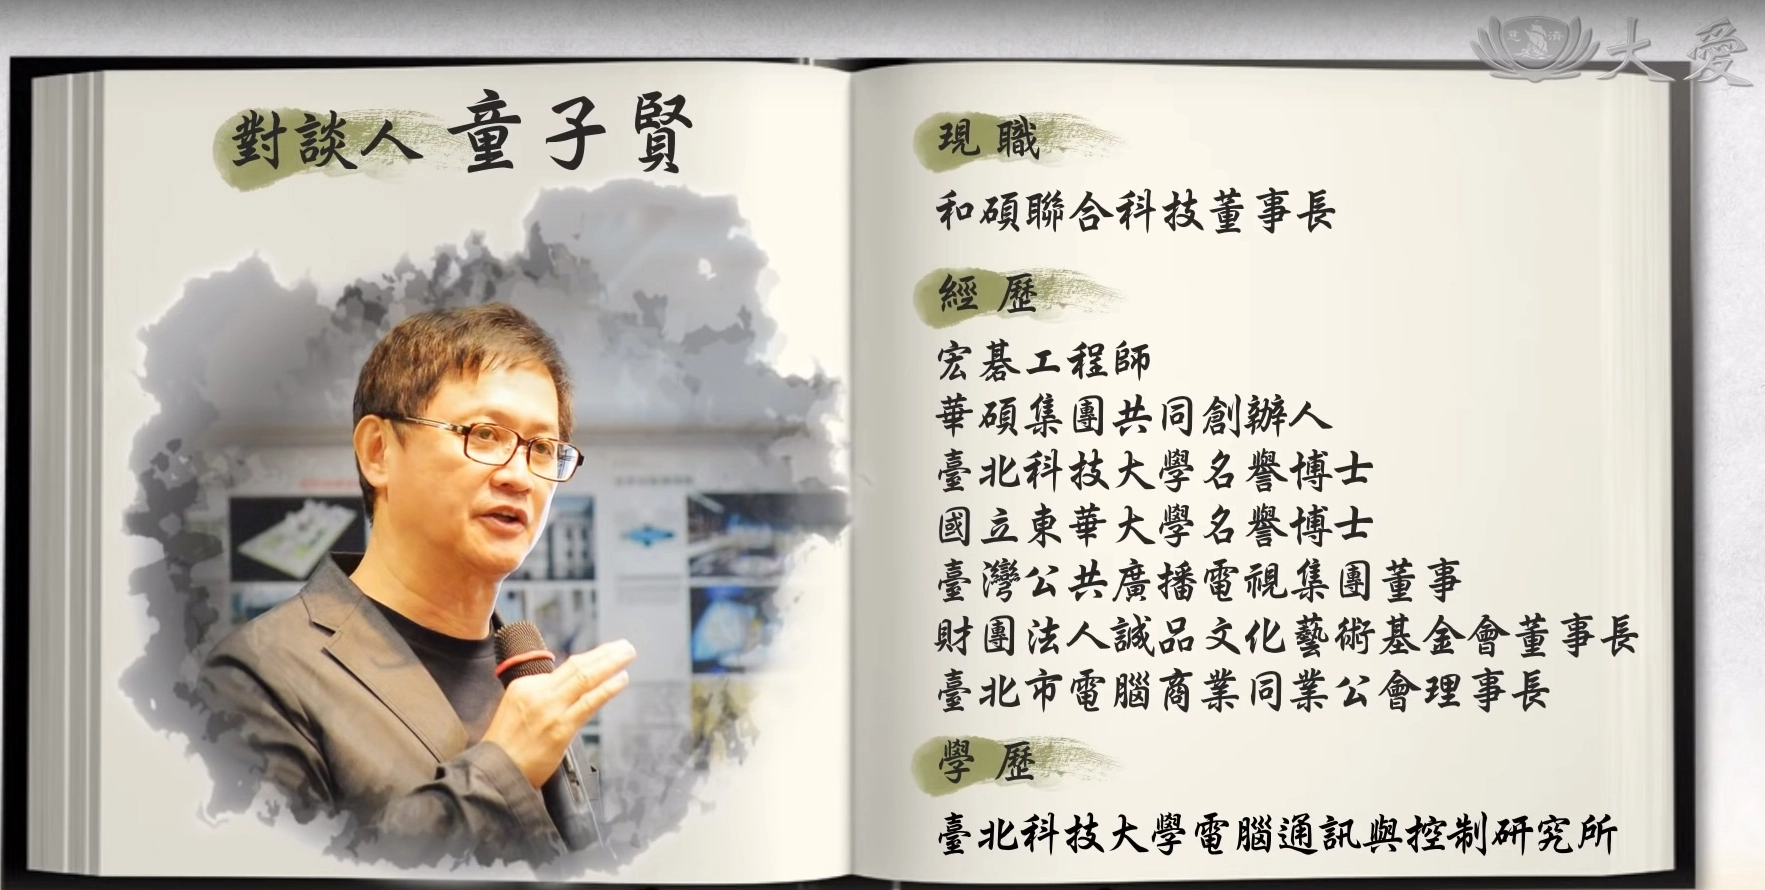 大愛
慈濟
對談人 童子賢
現職
和碩聯合科技董事長
經歷
宏碁工程師
華碩集團共同創辦人
臺北科技大學名譽博士
國立東華大學名譽博士
臺灣公共廣播電視集團董事
財團法人誠品文化藝術基金會董事長
臺北市電腦商業同業公會理事長
學歷
臺北科技大學電腦通訊與控制研究所